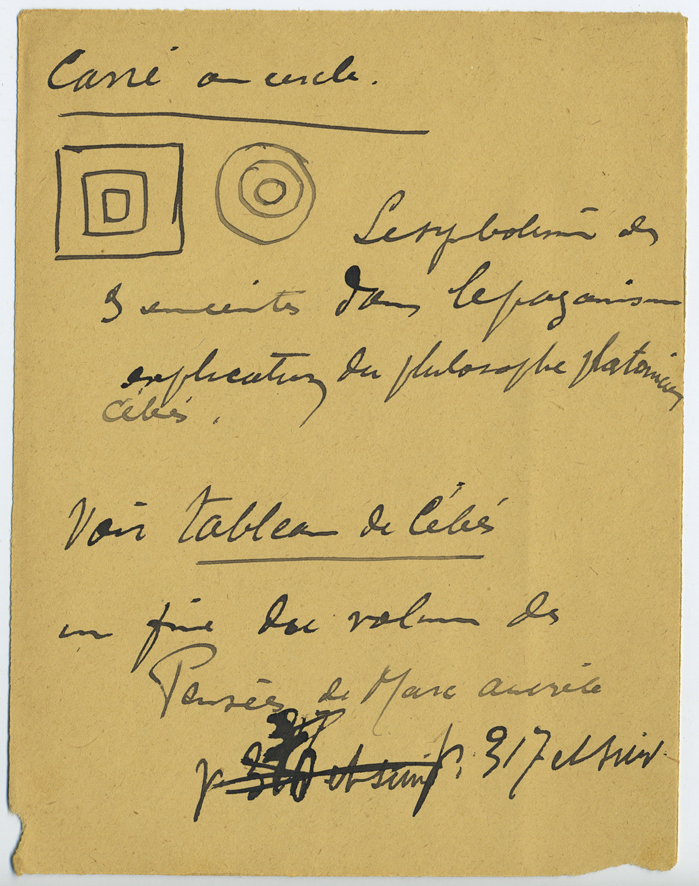 Carré ou cercle.
Le symbolisme des
3 enceintes dans le paganisme
explication du philosophe platonicien
Cébès.
Voir tableau de Cébès
en fin du volume des
Pensées de Marc Aurèle
p et suiv p. 317 et suiv.